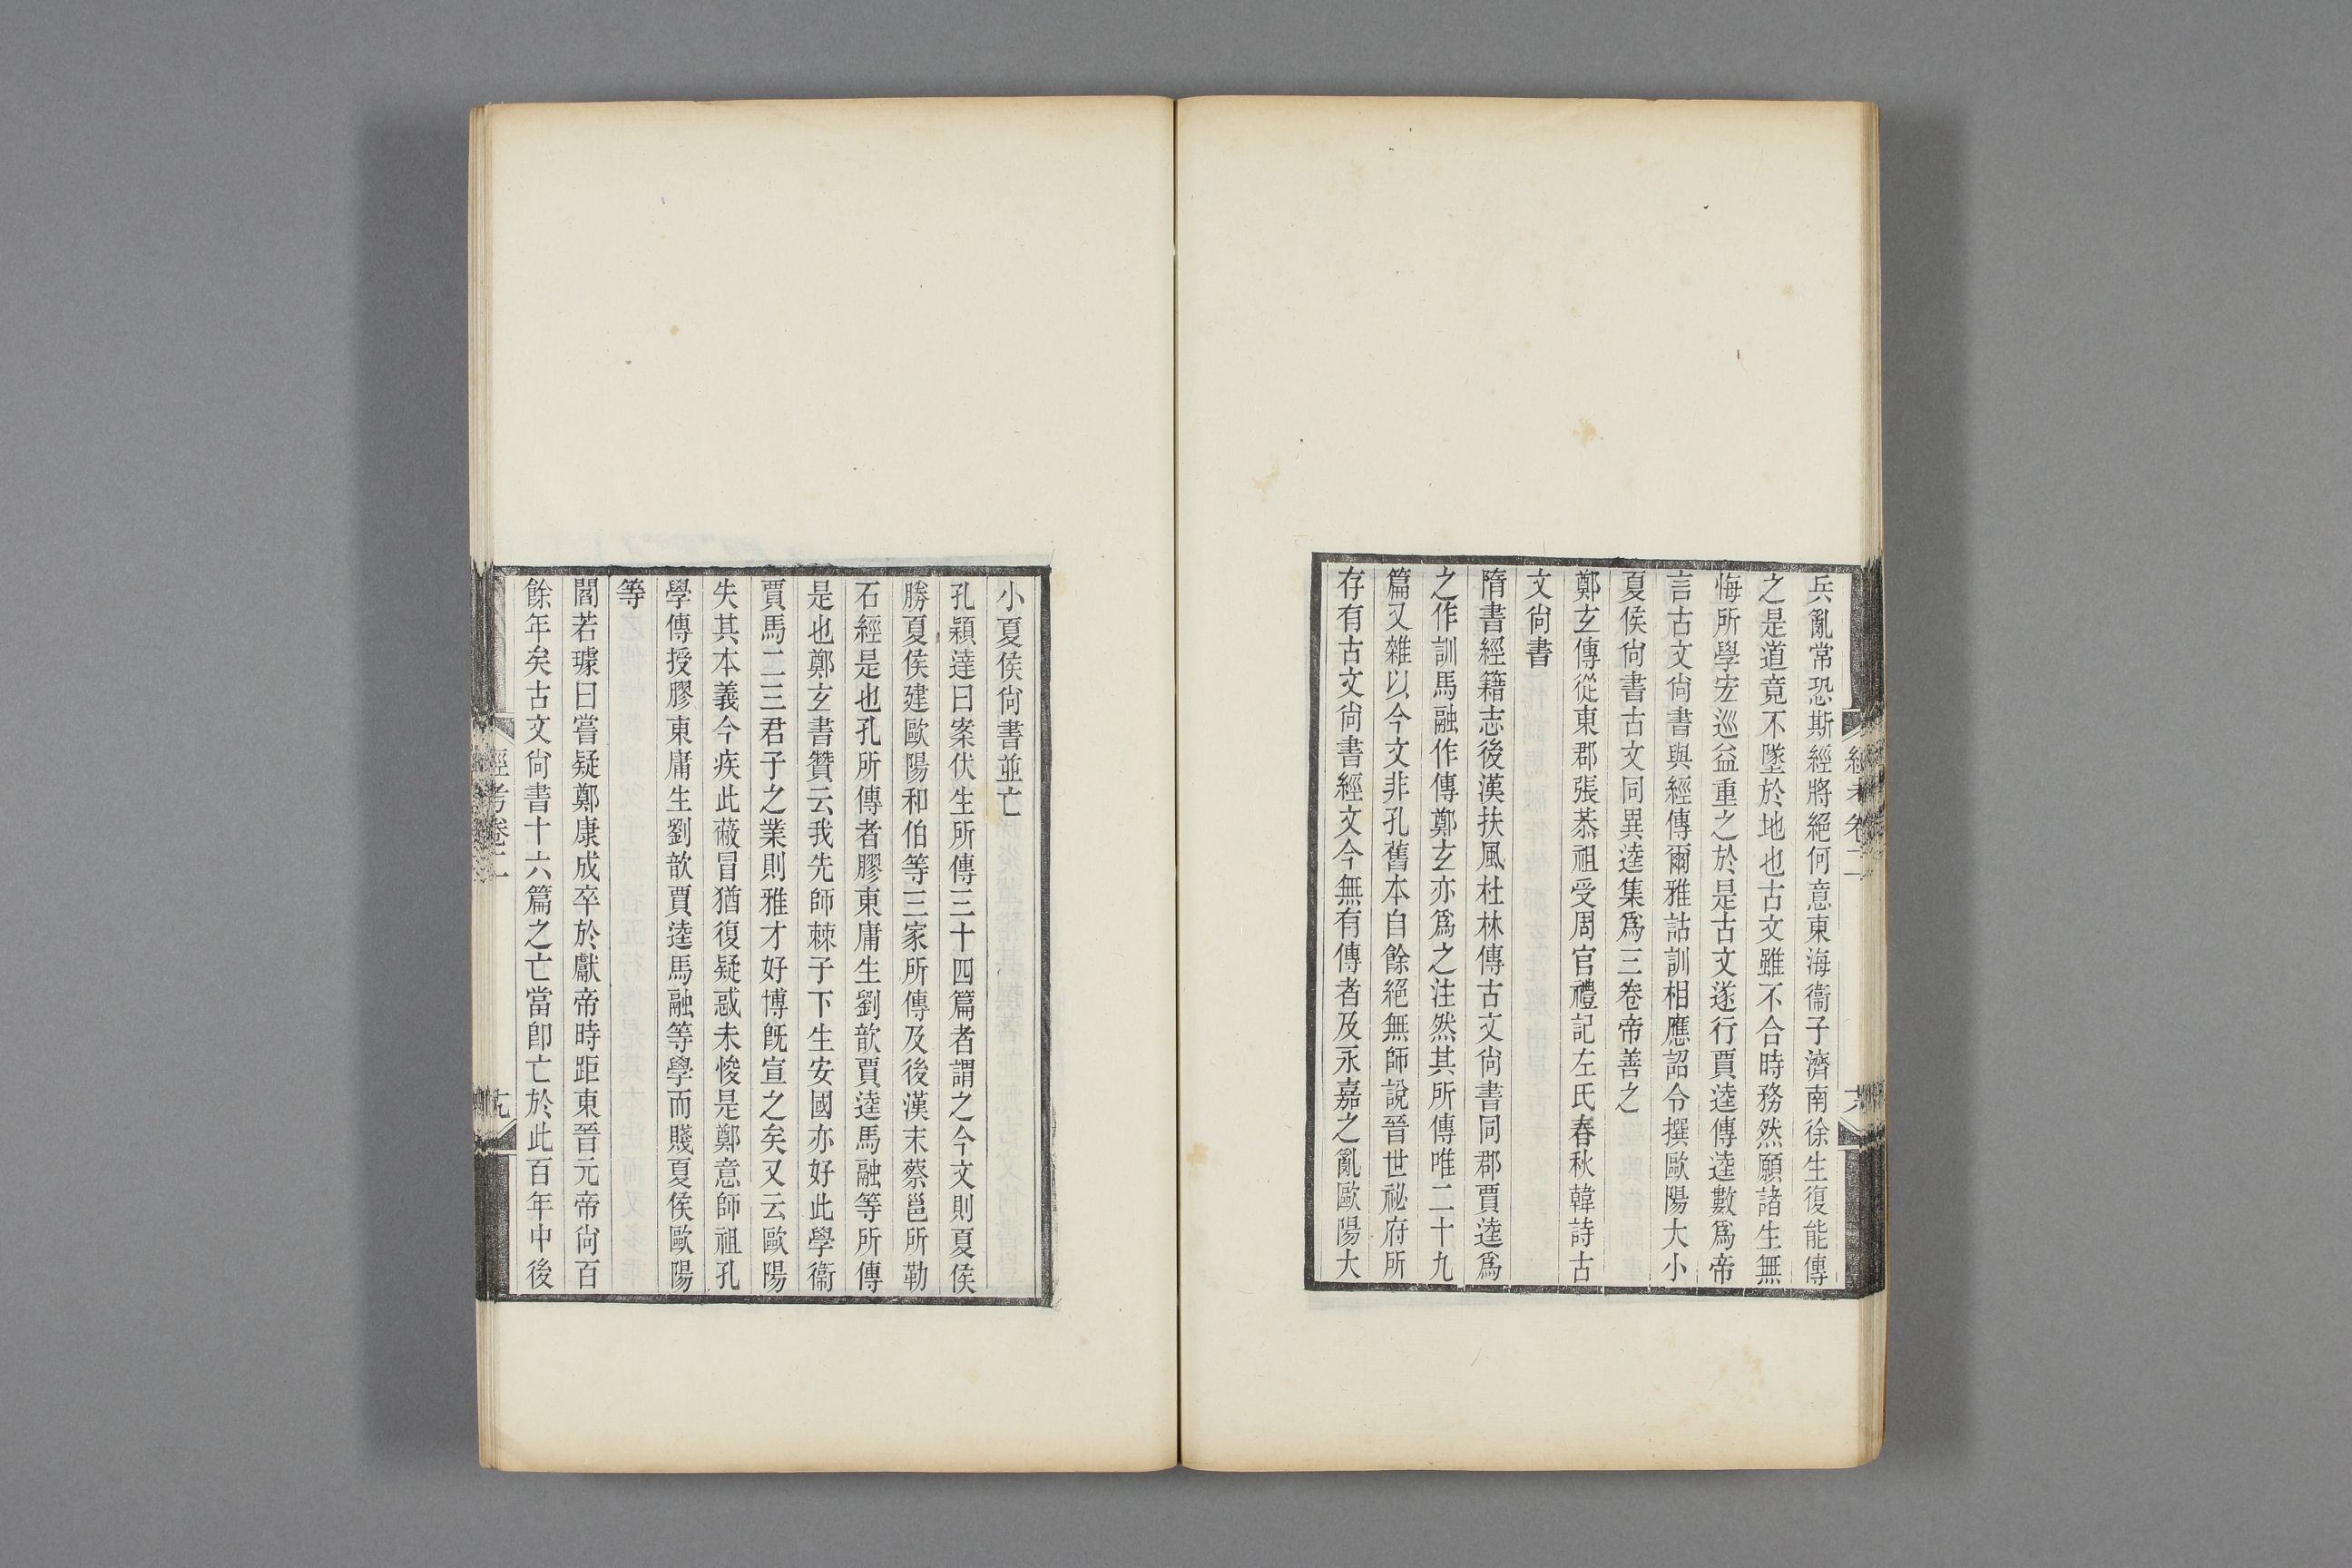 兵亂常恐斯經將絕何意東海衞子濟南徐生復能傳
之是道竟不墜於地也古文雖不合時務然願諸生無
悔所學宏巡益重之於是古文遂行賈逵傳逵數爲帝
言古文尙書與經傳爾雅詁訓相應詔令撰歐陽大小
夏侯尙書古文同異逵集爲三卷帝善之
鄭玄傳從東郡張恭祖受周官禮記左氏春秋韓詩古
文尙書
隋書經籍志後漢扶風杜林傳古文尙書同郡賈逵爲
之作訓馬融作傳鄭玄亦爲之注然其所傳唯二十九
篇又雜以今文非孔舊本自餘絕無師說晉世祕府所
存有古文尙書經文今無有傳者及永嘉之亂歐陽大
小夏侯尙書並亡
孔穎達曰案伏生所傳三十四篇者謂之今文則夏侯
勝夏侯建歐陽和伯等三家所傳及後漢末蔡邕所勒
石經是也孔所傳者膠東庸生劉歆賈逵馬融等所傳
是也鄭玄書贊云我先師棘子下生安國亦好此學衞
賈馬二三君子之業則雅才好博旣宣之矣又云歐陽
失其本義今疾此蔽冒猶復疑惑未悛是鄭意師祖孔
學傳授膠東庸生劉歆賈逵馬融等學而賤夏侯歐陽
等
閻若璩曰嘗疑鄭康成卒於獻帝時距東晉元帝尙百
餘年矣古文尙書十六篇之亡當卽亡於此百年中後
經考卷二